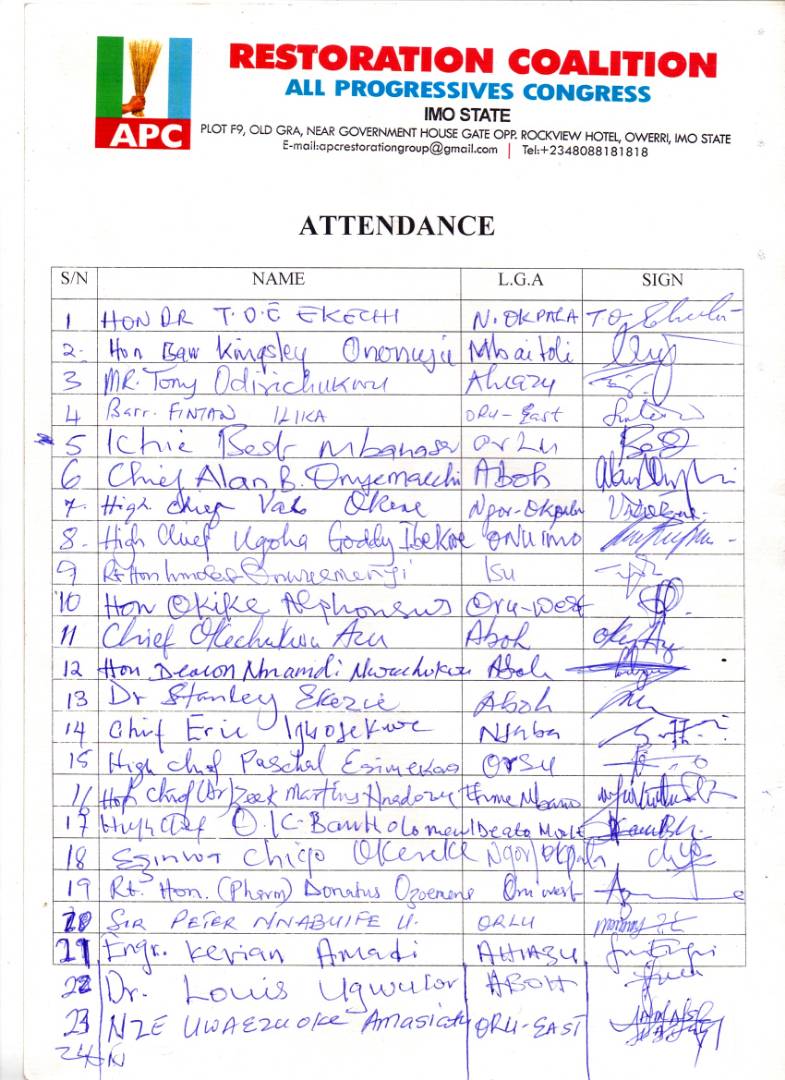 APC
RESTORATION COALITION
ALL PROGRESSIVES CONGRESS
IMO STATE
PLOT F9, OLD GRA, NEAR GOVERNMENT HOUSE GATE OPP. ROCKVIEW HOTEL, OWERRI, IMO STATE
E-mail:apcrestorationgroup@gmail.com | Tel:+2348088181818
ATTENDANCE
S/N NAME L.G.A SIGN
1 HON DR T.O.E EKECHI N. OKPALA
2. Hon Kingsley Ononuju Mbaitoli
3 MR. Tony Odirichukwu Ahiazu
4 Barr. FINTAN ILIKA ORU-East
5 Ichie Best Mbanaso orLu
6 Chief Alan B. Onyemaechi Aboh
7. High chief Okere Ngor-Okpala
8. High Chief Ugoha Goddy Ibekwe ONUIMO
9 Rt. Hon Isu
10 Hon Okike Alphonsus Oru-west
11 Chief Okechukwu Azu Aboh
12 Hon Deacon Nnamdi Nwachukwu Aboh
13 Dr Stanley Ekezie Aboh
14 Chief Eric Njaba
15 High chief Paschal ORSU
16 Hon Chief (Dr) Martins Mbano
17 High Chief O.K. Ideato
18 Ezinwa Chigo Okereke Ngor/Okpala
19 Rt. Hon. (Pharm) Donatus Ozoemena Oru west
20 SIR PETER NNABUIFE U. ORLU
21 Engr. Kevian Amadi AHIAZU
22 Dr. Louis Ugwulor ABOH
23 NZE UWAEZUOKE ORU-EAST
24